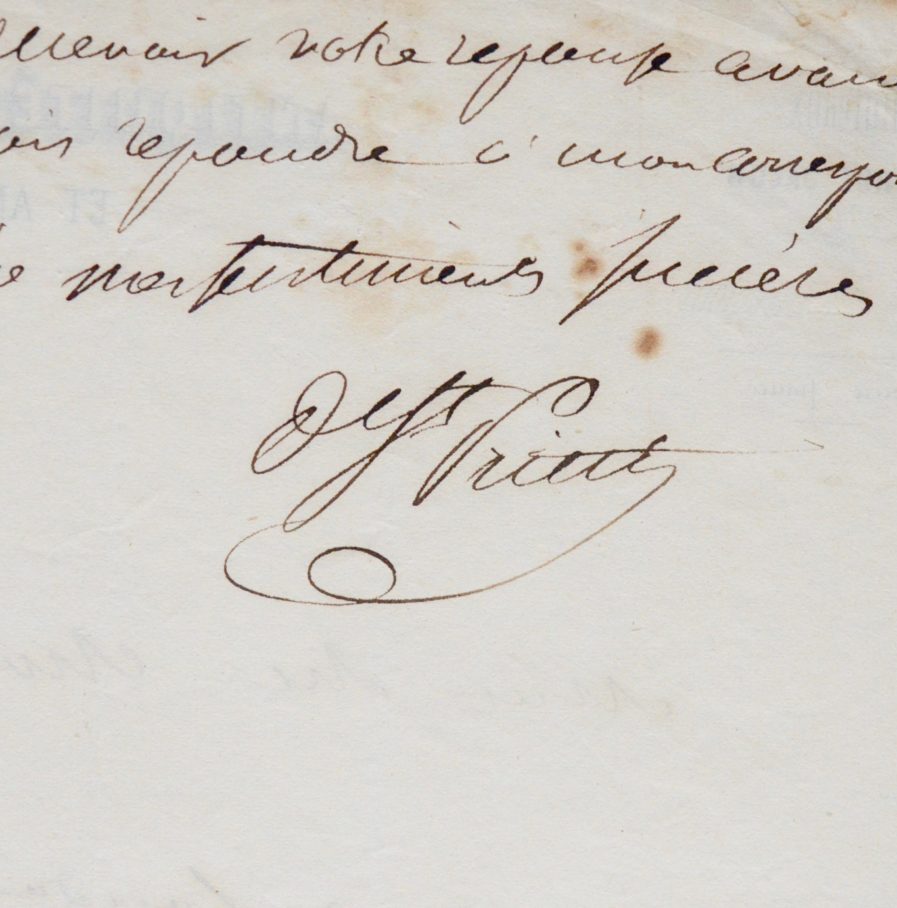 recevoir votre reponse avan
ois repondre a mon correspon
mes sentiments sincéres
De St Priest
ET A